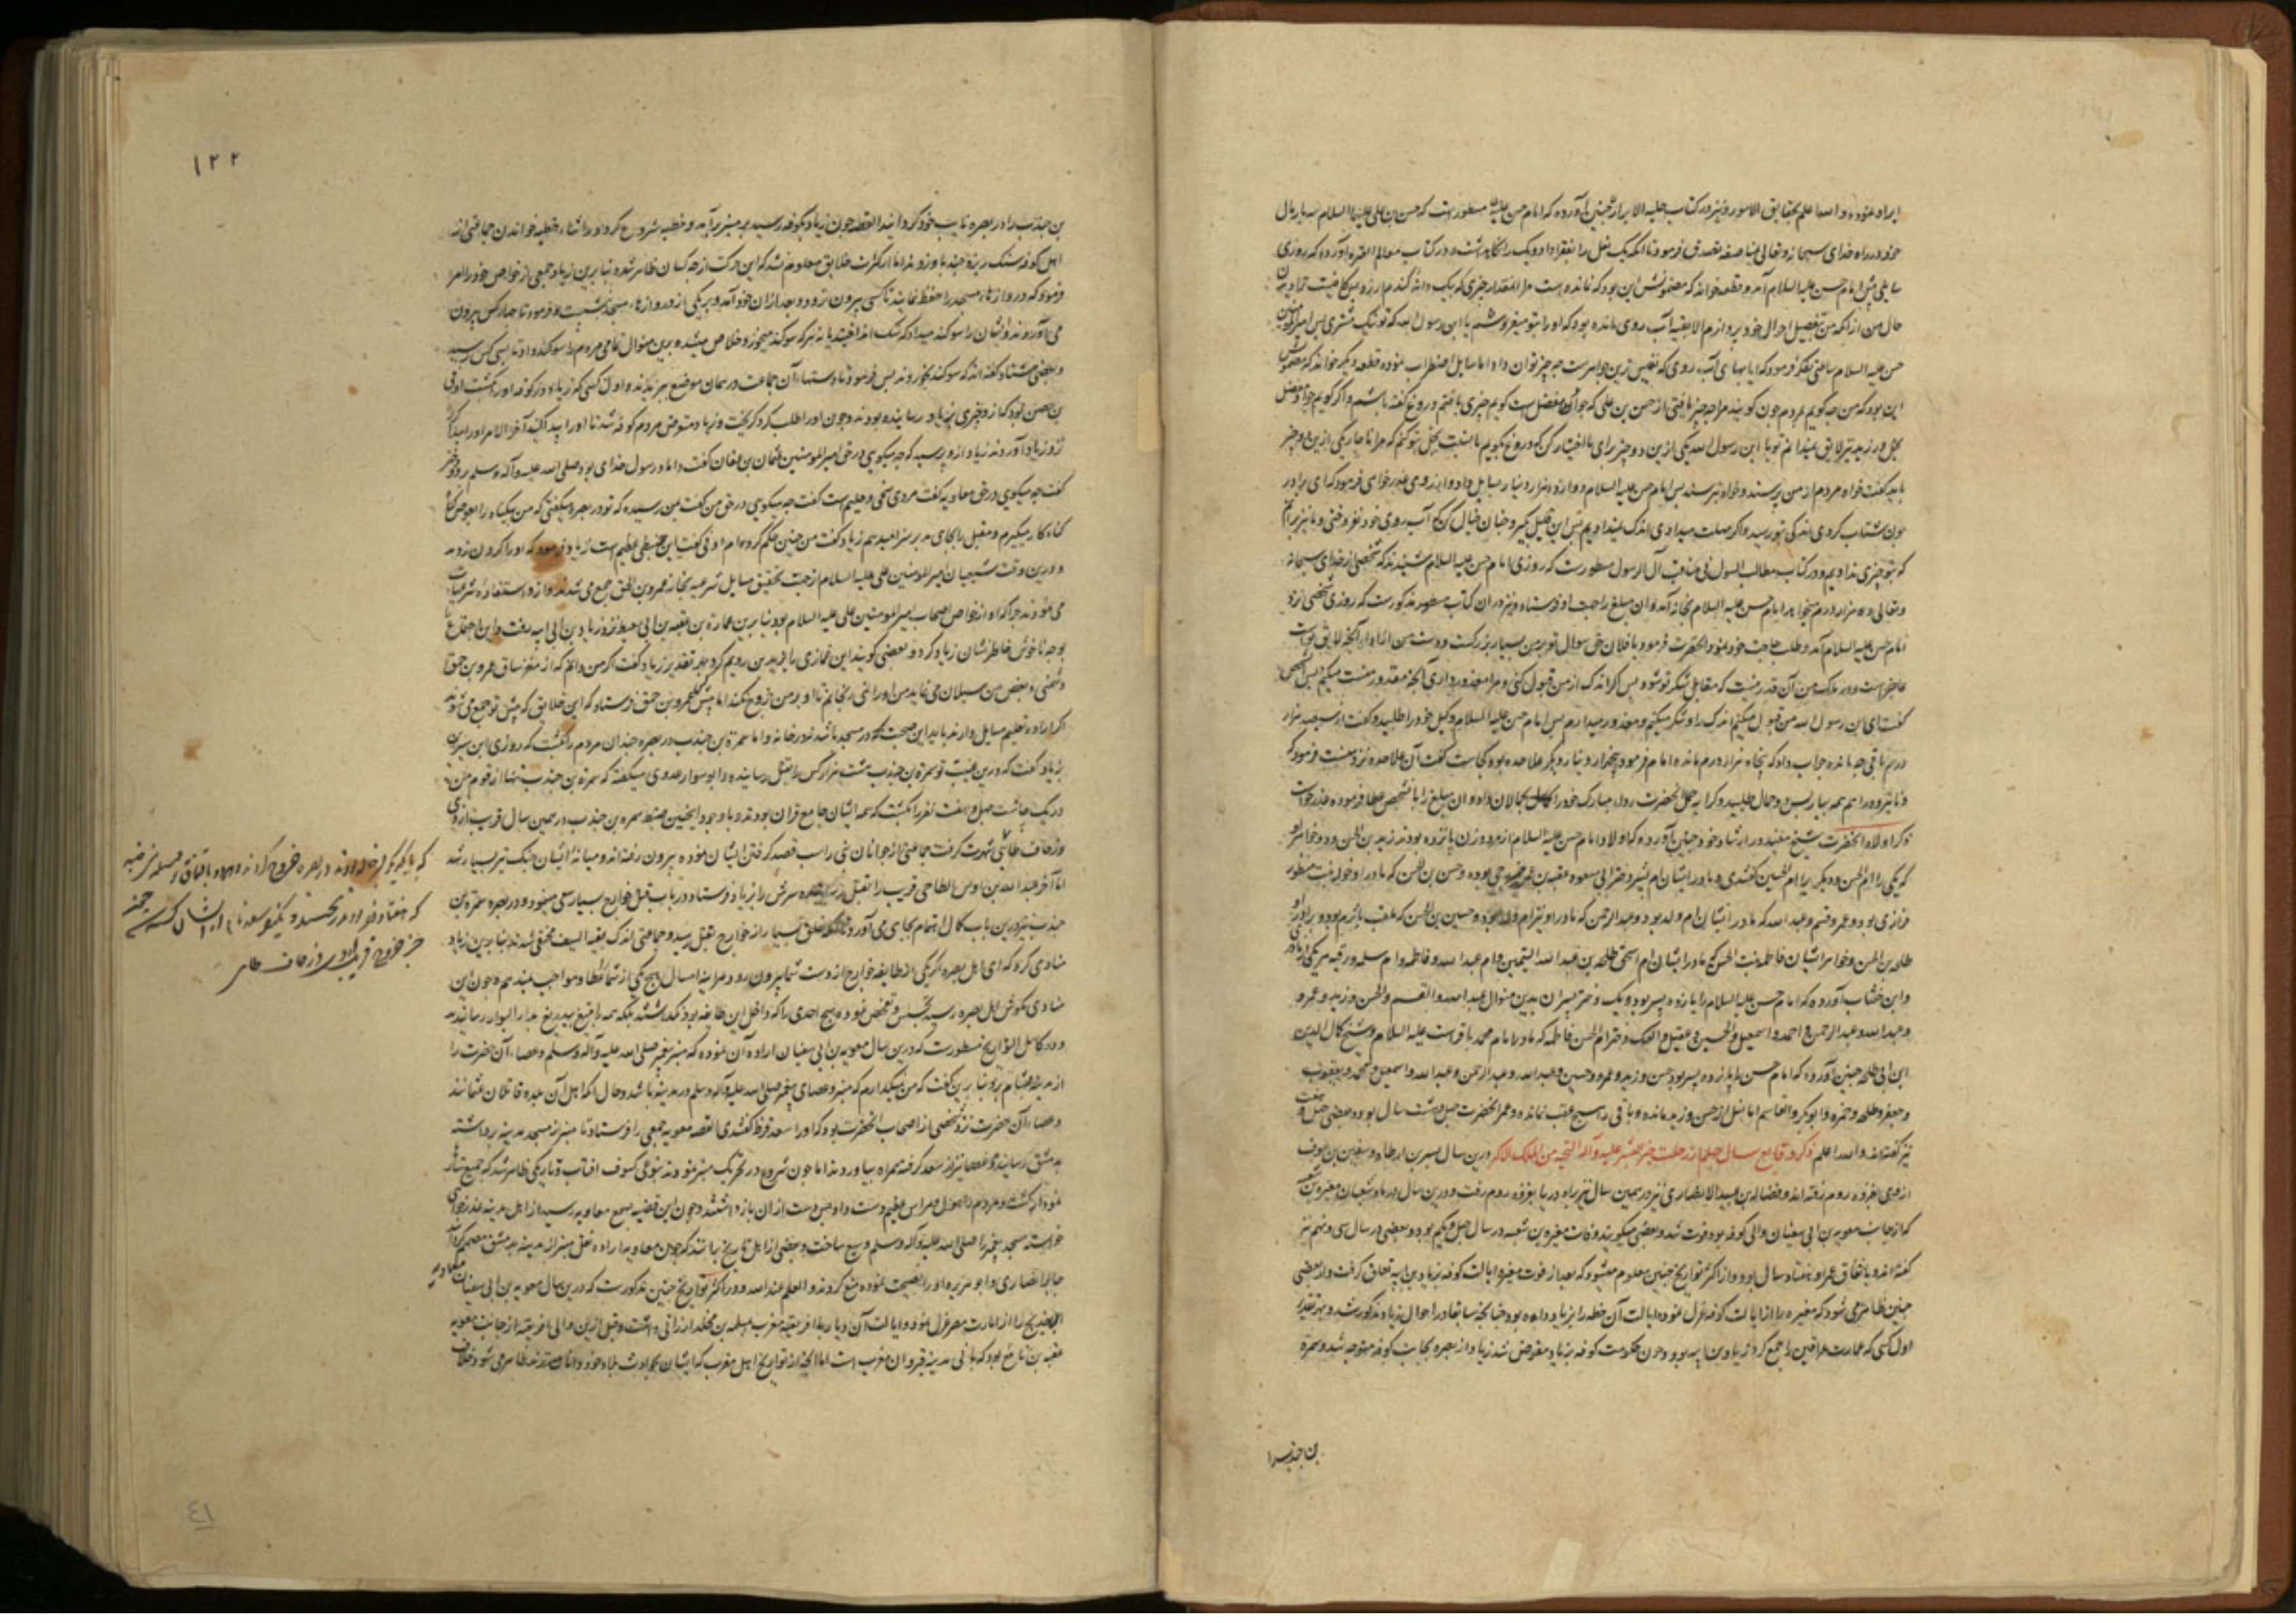 ایراد نموده و الله اعلم بحقایق الامور و نیز در کتاب حلیه الابرار چنین آورده که امام حسن علیه مسطورست که حسن بن علی علیهما السلام سه بار مال
خود در راه خدای سبحانه و تعالی مناصفه تصدق فرمود تا آنکه یک نعل را بفقرا داد و یک را نگاه داشت و در کتاب معالم العتره آورده که روزی
سایلی پیش امام حسن علیه السلام آمد و قطعه خواند که مضمونش این بود که نمانده است مرا آنمقدار چیزی که بیک دانه گندم ارزد
حال من از آنکه من تفصیل احوال خود پردازم الا بقیه آب روی مانده بود که او را بتو میفروشم یا ابن رسول الله که تو نیک مشتری پس امیر المومنین
حسن علیه السلام ساعتی تفکر فرمود که آیا بهای آب روی که نفیس ترین جواهرست چه چیز توان داد اما سایل اضطراب نموده قطعه دیگر خواند که مضمونش
این بود که من چه گویم بمردم چون گویند مرا چه چیز یافتی از حسن بن علی که جواد مفضل است اگر گویم چیزی یافتم دروغ گفته باشم و اگر گویم جواد مفضل
بخل ورزید نیز لایق نمیدانم تو یا ابن رسول الله یکی ازین دو چیز برای ما اختیار کن که دروغ بگویم یا نسبت بخل بتو کنم که مرا ناچار یکی ازین دو چیز
باید گفت خواه مردم از من پرسند و خواه نپرسند پس امام حسن علیه السلام دوازده هزار دینار بسایل داد و از روی عذرخواهی فرمود که ای برادر
چون شتاب کردی اندکی بتو رسید و اگر مهلت میدادی اندک نمیدادیم پس این قلیل بگیر و چنان خیال کن که آب روی خود نفروختی و ما نیز برآنیم
که بتو چیزی ندادیم و در کتاب مطالب السول فی مناقب آل الرسول مسطورست که روزی امام حسن علیه السلام شنید که شخصی از خدای سبحانه
و تعالی ده هزار درم میخواهد امام حسن علیه السلام بخانه آمد و آن مبلغ را جهت او فرستاد و نیز در آن کتاب مسطور مذکورست که روزی شخصی نزد
امام حسن علیه السلام آمد و طلب حاجت خود نمود آنحضرت فرمود یا فلان حق سوال تو بر من بسیار بزرگست و دست من از ادا و آنچه لایق تو است
عاجزست و در ملک من آن قدر نیست که مقابل شکر تو شود پس اگر اندک از من قبول کنی و مرا معذور داری آنچه مقدور منست میکنم پس آن شخص
گفت ای ابن رسول الله من قبول میکنم اندک را و شکر میکنم و معذور میدارم پس امام حسن علیه السلام وکیل خود را طلبید و گفت از سیصد هزار
درم باقی چه مانده جواب داد که پنجاه هزار درم مانده امام فرمود و پنجهزار دینار دیگر علاحده بود کجاست گفت آن علاحده نزد منست فرمود که
دنانیر و دراهم همه بیار پس حمال طلبید و کرایه حمل آنحضرت ردای مبارک خود را بحمالان داد و آن مبلغ را با شخص عطا فرموده عذر خواست
ذکر اولاد آنحضرت شیخ مفید در ارشاد خود چنین آورده که اولاد امام حسن علیه السلام از مرد و زن پانزده بودند زید بن الحسن و دو خواهر او
که یکی را ام الحسن و دیگر را ام الحسین گفتندی و مادر ایشان ام بشیر دختر ابی مسعود عقبه بن عمرو خزرجی بوده و حسن بن الحسن که مادر او خوله بنت منظور
فزاری بود و عمرو و قسم و عبد الله که مادر ایشان ام ولد بود و عبد الرحمن که مادر او نیز ام ولد بود و حسین بن الحسن که ملقب باثرم بود و برادر او
طلحه بن الحسن و خواهر ایشان فاطمه بنت الحسن که مادر ایشان ام اسحق طلحه بن عبد الله التیمی و ام عبد الله و فاطمه و ام سلمه و رقیه هر یکی از مادر
و ابن خشاب آورده که امام حسن علیه السلام را یازده پسر بود و یک دختر پسران بدین منوال عبد الله و القسم و الحسن و زید و عمرو
و عبد الله و عبد الرحمن و احمد و اسمعیل و الحسین و عقیل و دختر ام الحسن فاطمه که مادر امام محمد باقرست علیه السلام و شیخ کمال الدین
ابن ابی طلحه چنین آورده که امام حسن را پانزده پسر بود حسن و زید و عمرو و حسین و عبد الله و عبد الرحمن و عبد الله و اسمعیل و محمد و یعقوب
و جعفر و طلحه و حمزه و ابو بکر و القاسم اما نسل از حسن و زید مانده و باقی را هیچ عقب نمانده و عمر آنحضرت چهل و هشت سال بود و بعضی چهل و هفت
نیز گفته اند و الله اعلم ذکر وقایع سال چهلم از رحلت خیر البشر علیه و آله التحیه من الملک الاکبر درین سال بسر بن ارطاه و سفین بن عوف
ازدی بغزوه روم رفته اند و فضاله بن عبید الانصاری نیز در همین سال نیز براه دریا بغزوه روم رفت و درین سال در ماه شعبان مغیره بن شعبه
که از جانب معویه بن ابی سفیان والی کوفه بود فوت شد و بعضی میگویند وفات مغیره بن شعبه در سال چهل و یکم بود و بعضی در سال سی و نهم نیز
گفته اند و باتفاق عمر او هفتاد سال بود و از اکثر تواریخ چنین معلوم میشود که بعد از فوت مغیره ایالت کوفه بزیاد بن ابیه تعلق گرفت و از بعضی
چنین ظاهر می شود که مغیره را از ایالت کوفه عزل نموده ایالت آن خطه را بزیاد داده بود چنانچه سابقا در احوال زیاد مذکور شد و بهر تقدیر
اول کسی که عمارت عراقین را جمع کرد زیاد بن ابیه بود و چون حکومت کوفه بزیاد مفوض شد زیاد از بصره بجانب کوفه متوجه شد و سمرة
بن جندب را
۱۲۲
بن جندب را در بصره نایب خود گردانید القصه چون زیاد بکوفه رسید بر منبر برآمد و خطبه شروع کرد و در اثناء خطبه خواندن جماعتی از
اهل کوفه سنک ریزه چند باو زدند اما از کثرت خلایق معلوم نشد که این حرکت از چه کسان ظاهر شده بنا برین زیاد جمعی از خواص خود را امر
فرمود که دروازهاء مسجد را حفظ نمایند تا کسی بیرون نرود و بعد ازان خود آمد و بر یکی از دروازهاء مسجد نشست و فرمود تا چهار کس بیرون
می آوردند و ایشان را سوگند میداد که سنک انداخته اید یا نه هر که سوگند میخورد خلاص میشد و برین منوال تمامی مردم را سوگند داد تا بسی کس رسید
و بعضی هشتاد گفته اند که سوگند نخوردند پس فرمود تا دستهاء آن جماعت در همان موضع ببریدند و اول کسی که زیاد در کوفه او را کشت اوفی
بن حصن بود که ازو چیزی بزیاد رسانیده بودند و چون او را طلب کرد گریخت و زیاد متعرض مردم کوفه شد تا او را پیدا کنند آخر الامر او را پیدا کرده
نزد زیاد آوردند زیاد ازو پرسید که چه میگویی در حق امیر المومنین عثمان بن عفان گفت داماد رسول خدای بود صلی الله علیه و آله و سلم بر دو دختر
گفت چه میگویی در حق معاویه گفت مردی سخی و حلیم است گفت چه میگویی در حق من گفت بمن رسیده که تو در بصره میگفتی که من بیگناه را بعوض
گناه کار میگیرم و مقبل را بجای مدبر سزا میدهم زیاد گفت من چنین حکم کرده ام اوفی گفت این خبطی عظیم است زیاد فرمود که او را گردن زدند
و درین وقت شیعیان امیر المومنین علی علیه السلام از جهت تحقیق مسایل شرعیه بخانه عمرو بن الحمق جمع می شدند و ازو استفاده شرعیات
می نمودند چرا که او از خواص اصحاب امیر المومنین علی علیه السلام بود بنا برین عماره بن عقبه بن ابی معیط نزد زیاد بن ابی ابیه رفت و این اجتماع را
بوجه ناخوش خاطر نشان زیاد کرد و بعضی گویند این غمازی را یزید بن رویم کرد بهر تقدیر زیاد گفت اگر من دانم که از مغز ساق عمرو بن حمق
دشمنی و بغض من سیلان می نماید من او را نمی رنجانم تا او بر من خروج نکند اما پیش عمرو بن حمق فرستاد که این خلایق که پیش تو جمع می شوند
اگر اراده تعلیم مسایل دارند باید این صحبت در مسجد باشد نه در خانه و اما سمرة بن جندب در بصره چندان مردم را کشت که روزی ابن سیرین
زیاد گفت که درین غیبت تو سمرة بن جندب هشت هزار کس را بقتل رسانیده و ابو سوار عدوی میگفته که سمرة بن جندب تنها از قوم من
در یک چاشت چهل و هفت نفر را بکشت که همه ایشان جامع قران بودند و باوجود این چنین ضبط سمره بن جندب در همین سال قریب ازدی
و زحاف طائی شهرت گرفت جماعتی از جوانان بنی راسب قصد گرفتن ایشان نموده بیرون رفته اند و میانه ایشان جنک تیر بسیار شد
اما آخر عبد الله بن اوس الطاحی قریب را بقتل رسانیده سرش را بزیاد فرستاد و در باب قتل خوارج بسیار سعی مینمود و در بصره سمرة بن
جندب نیز درین باب کمال اهتمام بجای می آورد خلق بسیار از خوارج بقتل رسید و جماعتی اندک بقیه السیف مخفی شدند بنا برین زیاد
منادی کرد که ای اهل بصره اگر یکی از طایفه خوارج از دست شما بیرون رود هر اینه امسال هیچ یکی از شما عطا و مواجب نمیدهم و چون این
منادی بگوش اهل بصره رسید تجسس و تفحص نموده هیچ احدی را که داخل این طایفه بود نگذاشتند بلکه همه را بتیغ بیدریغ بدار البوار رسانیدند
و در کامل التواریخ مسطورست که درین سال معویه بن ابی سفیان اراده آن نموده که منبر پیغمبر صلی الله علیه و آله و سلم و عصاء آن حضرت را
از مدینه بشام برد بنا برین گفت که من نمیگذارم که منبر و عصای پیغمبر صلی الله علیه و آله و سلم در مدینه باشد و حال آنکه اهل آن بلده قاتلان عثمانند
و عصاء آن حضرت نزد شخصی از اصحاب آنحضرت بود که او را سعد قرظ گفتندی القصه معویه جمعی را فرستاد تا منبر از مسجد مدینه برداشته
بدمشق رسانند و عصا نیز از سعد گرفته همراه بیاورند اما چون شروع در تحریک منبر نمودند بنوعی کسوف افتاب و تاریکی ظاهر شد که جمیع ستاره
نمودار گشت و مردم را هول و هراس عظیم دست داد پس دست ازان بازداشتند و چون این قضیه بسمع معاویه رسید از اهل مدینه عذرخواهی
خواسته مسجد پیغمبر را صلی الله علیه و آله و سلم وسیع ساخت و بعضی از اهل تاریخ برانند که چون معاویه اراده نقل منبر از مدینه بدمشق مصمم کرد
جابر انصاری و ابو هریره او را نصیحت نموده منع کردند و العلم عند الله و در اکثر تواریخ چنین مذکورست که درین سال معویه بن ابی سفیان معاویه
بن خدیج را از امارت مصر عزل نمود و ایالت آن دیار با افریقیه مغرب بمسلمه بن مخلد ارزانی داشت و قبل ازین والی افریقیه از جانب معویه
عقبه بن نافع بود که بانی مدینه قیروان مغرب است اما آنچه از تواریخ اهل مغرب که ایشان بحوادث بلاد خود داناترند ظاهر می شود خلاف
که با یکدیگر خاله زاده بودند در بصره خروج کردند
که هفتاد نفر بودند
خبر خروج قریب ازدی و زحاف طایی
٤١